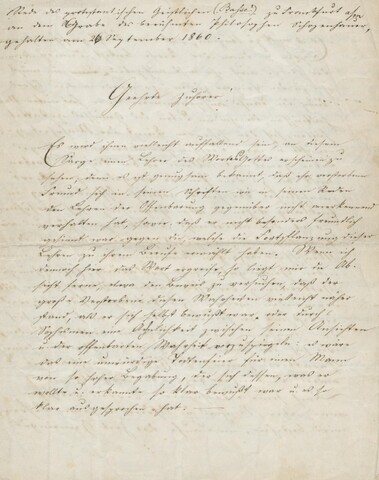 Rede des protestantischen Geistlichen Basse zu Frankfurt a/m
an dem Grabe des berühmten Philosophen Schopenhauer,
gehalten am 26 September 1860.
Geehrte Zuhörer!
Es wird Ihnen vielleicht auffallend sein, an diesem
Sarge einen Lehrer des erscheinen zu
sehen, denn es ist genugsam bekannt, daß Ihr verehrter
Freund sich in seinen Schriften u in seinen Reden
den Lehren der Offenbarung gegenüber nicht anerkennend
verhalten hat, daß er nicht besonders freundlich
gesinnt war gegen die, welche die Fortpflanzung dieser
Lehren zu ihrem Berufe erwählt haben. Wenn ich
dennoch hier das Wort ergreife, so liegt mir die Ab-
sicht ferne, etwa den Beweis zu versuchen, daß der
große Verstorbene diesen Wahrheiten vielleicht näher
stand, als er sich selbst bewußt war, oder durch
Sophismen ein zwischen seinen Ansichten
u der offenbarten Wahrheit vorzuspiegeln: es wäre
das eine unwürdige Todtenfeier für einen Mann
von so hoher Begabung, der sich dessen, was er
wollte u erkannte so klar bewußt war u es so
klar ausgesprochen hat. —